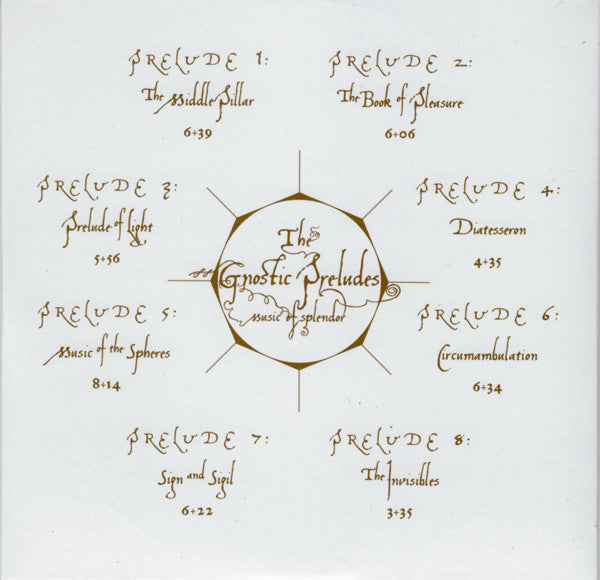 PRELUDE 1:
The Middle Pillar
6+39
PRELUDE 2:
The Book of Pleasure
6+06
PRELUDE 3:
Prelude of Light
5+56
PRELUDE 4:
Diatesseron
4+35
The
Gnostic Preludes
Music of splendor
PRELUDE 5:
Music of the Spheres
8+14
PRELUDE 6:
Circumambulation
6+34
PRELUDE 7:
Sign and Sigil
6+22
PRELUDE 8:
The Invisibles
3+35